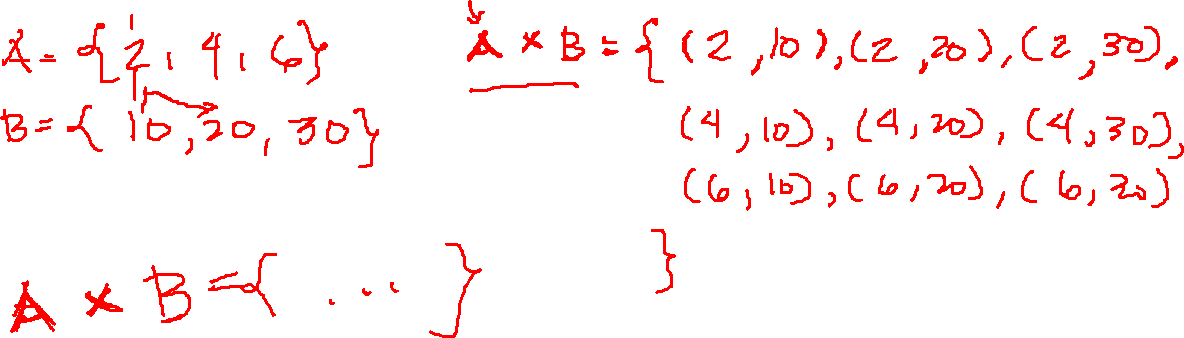 A = {2, 4, 6}
B = {10, 20, 30}
A × B = { (2, 10), (2, 20), (2, 30),
(4, 10), (4, 20), (4, 30),
(6, 10), (6, 20), (6, 20)
}
A × B = { ... }